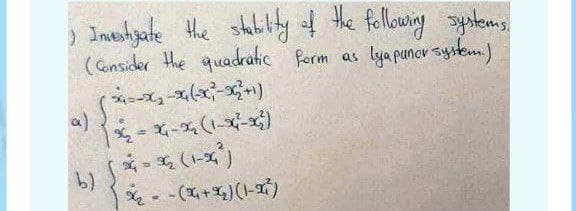 ) Investigate the stability of the following systems.
(Consider the quadratic form as lyapunov system.)
a) { ẋ₁=-x₂-x₁(-x₁²-x₂²+1)
ẋ₂ = x₁-x₂ (1-x₁²-x₂²)
b) { ẋ₁ = x₂ (1-x₁²)
ẋ₂ = -(x₁+x₂)(1-x₁²)